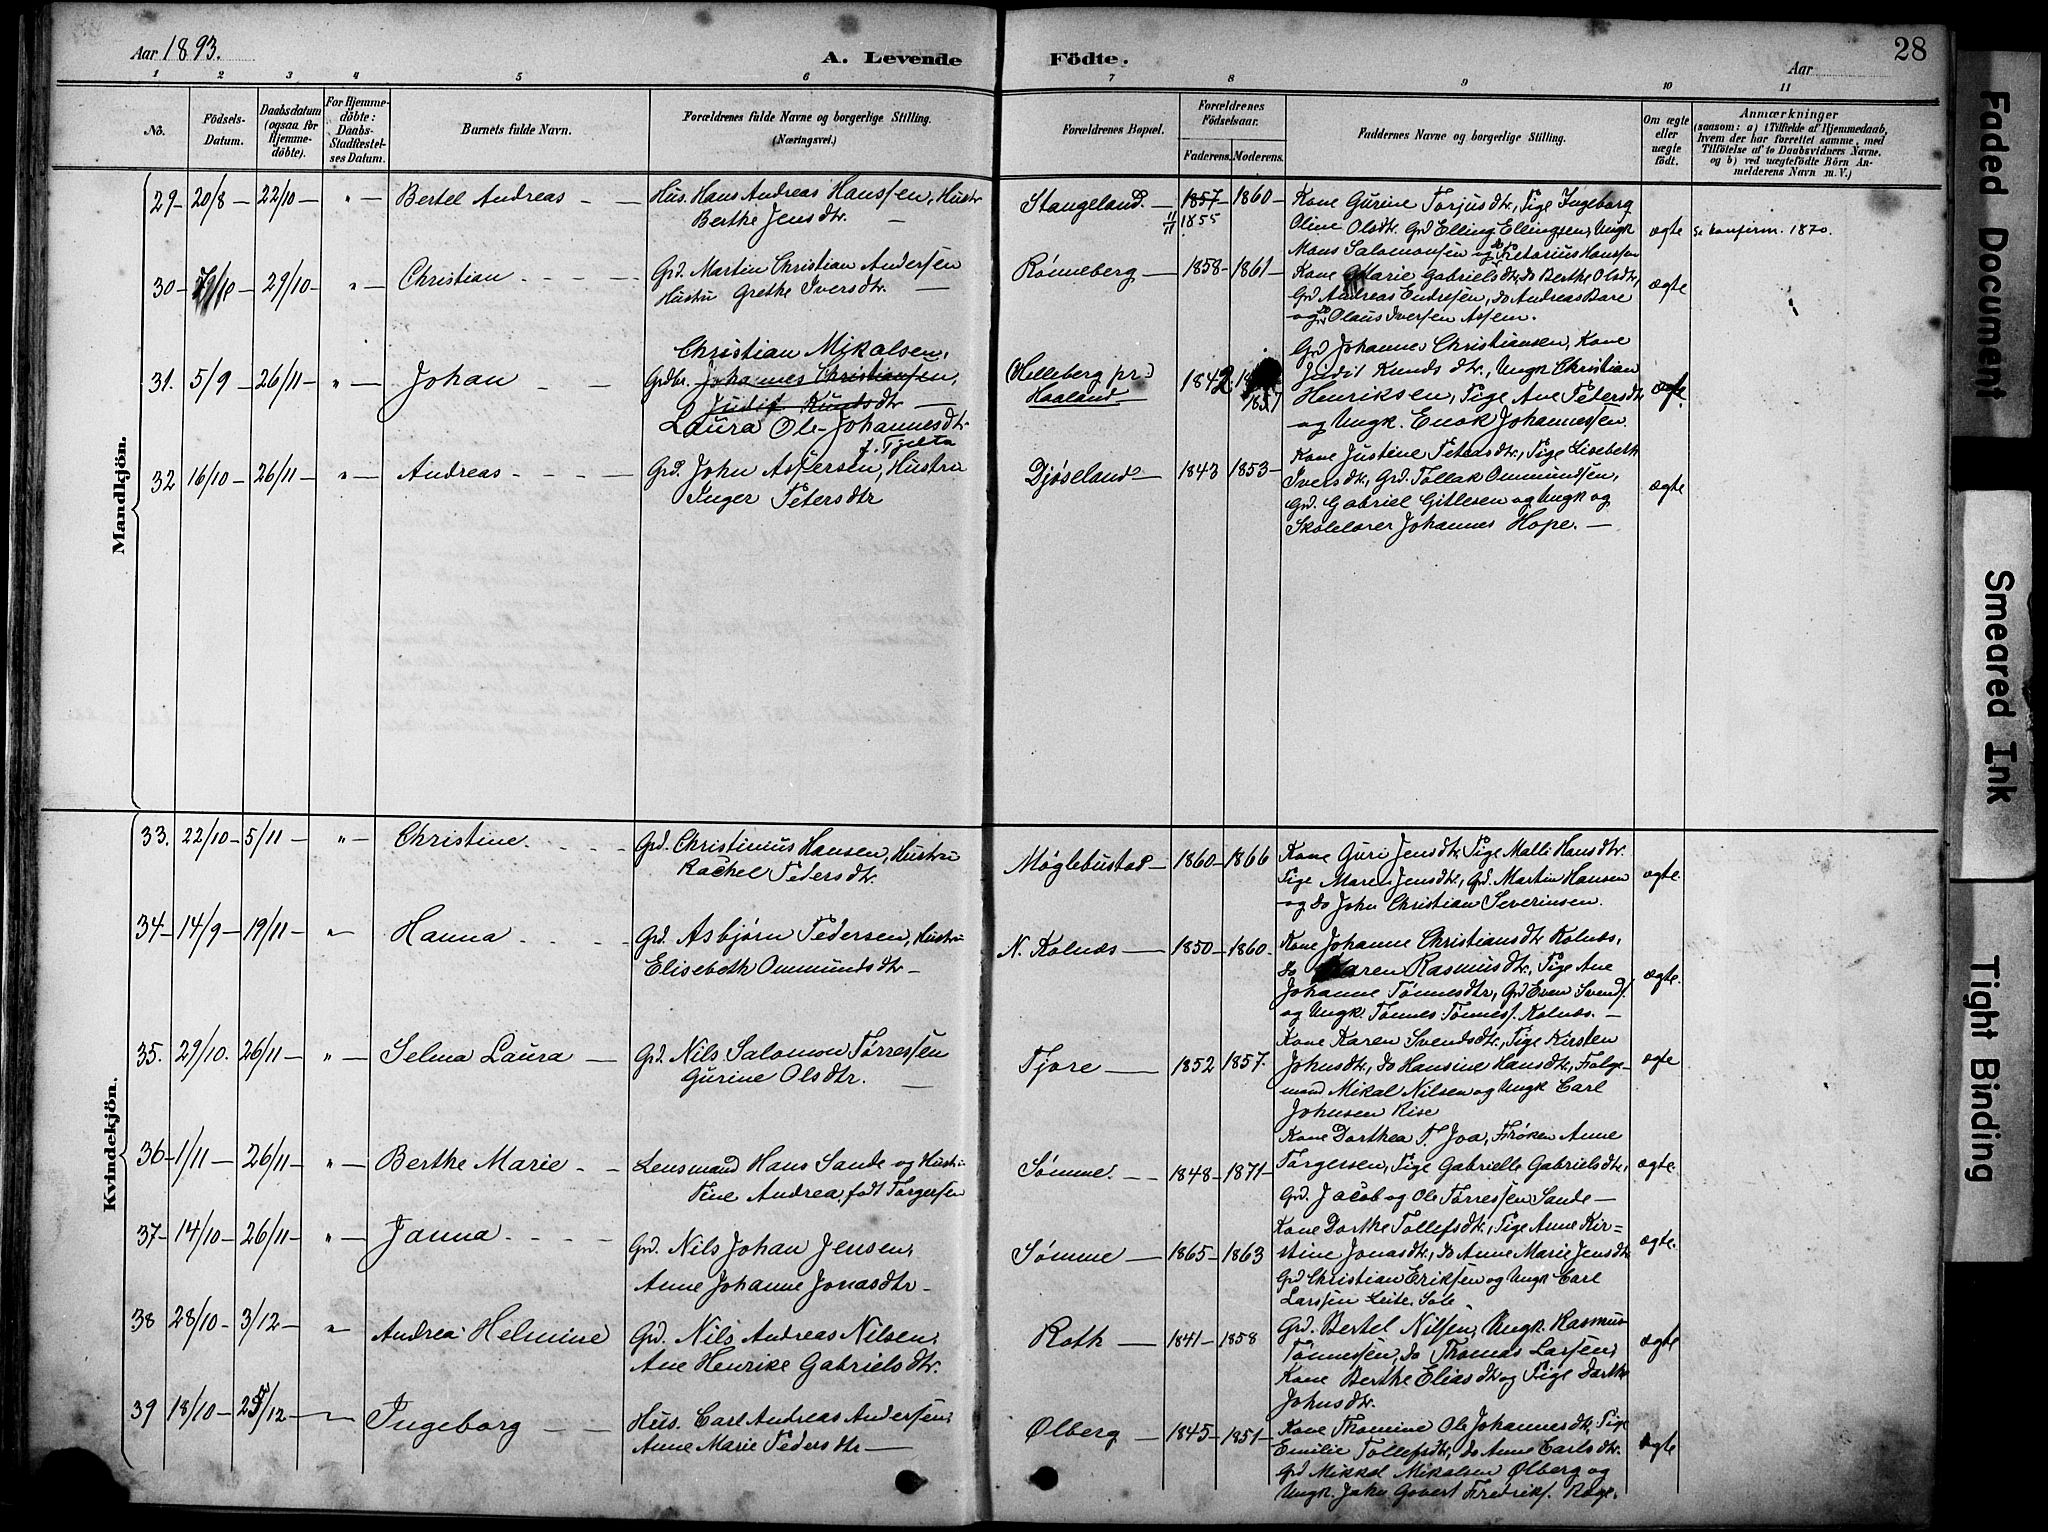 Aar 1893.
A. Levende Födte.
Aar
28
1 2 3 4 5 6 7 8 9 10 11
No.
Födsels-Datum.
Daabsdatum (ogsaa for Hjemmedöbte).
For Hjemmedöbte: Daabs-Stadfæstelses Datum.
Barnets fulde Navn.
Forældrenes fulde Navne og borgerlige Stilling. (Næringsvei.)
Forældrenes Bopæl.
Forældrenes Födselsaar.
Faderens. Moderens.
Faddernes Navne og borgerlige Stilling.
Om ægte eller uægte födt.
Anmærkninger
(saasom: a) i Tilfælde af Hjemmedaab, hvem der har forrettet samme, med Tilföielse af to Daabsvidners Navne, og b) ved uægtefödte Börn Anmelderens Navn m. V.)
Mandkjön.
29 20/8 22/10 " Bertel Andreas
Hus. Hans Andreas Hanssen, Hustr
Berthe Jensdtr.
Stangeland. 1857 1860
11/11 1855
Kone Gurine Torjusdtr, Pige Ingeborg
Oline Olsdtr. Grd Elling Ellingsen, Ungk
Mons Salomonsen og Hanssen
ægte
Se konfirm. 1870.
30 29/10 " Christian
Grd. Martin Christian Andersen
Hustru Grethe Iversdtr.
Rønneberg 1858 1861
Kone Marie Gabrielsdtr, do Berthe Olsdtr,
Grd Andreas Endresen, do Andreas Bore
og Olaus Iversen Assem.
ægte
31. 5/9 26/11 " Johan
Christian Mikalsen,
Grdbr. Johannes Christiansen,
Judit Knudsdtr
Laura Ole-Johannesdtr
f. Tjelta
(Helleberg pr.)
Haaland
1842 1857
Grd Johannes Christiansen, Kone
Judit Knudsdtr., Ungk Christian
Henriksen, Pige Ane Petersdtr
og Ungk. Enok Johannessen
ægte.
32 16/10 26/11 " Andreas
Grd. John Aspersen, Hustru
Inger Petersdtr
Djøseland 1843 1853
Kone Justine Petersdtr, Pige Lisebeth
Iversdtr, Grd. Tollak Ommundsen,
Grd. Gabriel Gitlesen og Ungk og
Skolelærer Johannes Hope.
ægte
Kvindekjön.
33. 22/10 5/11 " Christine.
Grd. Christinius Hansen, Hustru
Rachel Pedersdtr.
Møglebustad 1860 1866
Kone Guri Jensdtr Pige Malli Hansdtr.
Pige Maren Jensdtr, Grd. Martin Hansen
og do John Christian Severinsen.
ægte.
34 14/9 19/11 " Hanna
Grd. Asbjørn Pedersen, Hustru
Elisebeth Ommundsdtr
N. Kolnæs 1850 1860.
Kone Johanne Christiansdtr Kolnæs,
do Karen Rasmusdtr, Pige Ane
Johanne Tønnesdtr, Grd Even Svends.
og Ungk. Tønnes Tønness. Kolnæs.
ægte.
35. 29/10. 26/11 " Selma Laura
Grd. Nils Salomon Tørressen
Gurine Olsdtr.
Tjore 1852 1857.
Kone Karen Svendsdtr, Pige Kirsten
Johnsdtr, do Hansine Hansdtr, Følge-
mand Mikal Nilsen og Ungk Carl
Johnsen Rise
ægte
36 1/11 26/11 " Berthe Marie
Lensmand Hans Sande og Hustru
Tine Andrea, født Torgersen
Sømme. 1848 1871
Kone Dorthea T. Joa, Frøken Anne
Torgersen, Pige Gabrielle Gabrielsdtr,
Grd. Jacob og Ole Tørressen Sande
ægte.
37 14/10 26/11 " Janna
Grd. Nils Johan Jensen,
Anne Johanne Jonasdtr
Sømme 1865 1863
Kone Dorthe Tollefsdtr, Pige Anne Kir-
stine Jonasdtr, do Anne Marie Jensdtr
Grd Christian Eriksen og Ungk Carl
Larssen Leite, Sole
ægte.
38 28/10 3/12 " Andrea Helmine
Grd. Nils Andreas Nilsen,
Ane Henrike Gabrielsdtr.
Roth 1841 1858
Grd. Bertel Nilsen, Ungk. Rasmus
Tønnessen, do Thomas Larsen,
Kone Berthe Eliasdtr og Pige Dorthe
Johnsdtr.
ægte
39 18/10 /12 " Ingeborg
Hus. Carl Andreas Andersen,
Anne Marie Pedersdtr
Ølberg 1845 1851
Kone Thomine Ole Johannesdtr, Pige
Emilie Tollefsdtr, do Anne Carlsdtr.
Grd Mikkal Mikalsen Ølberg og
Ungk. John Govert Fredriks. Ræge.
ægte
Faded Document
Smeared Ink
Tight Binding